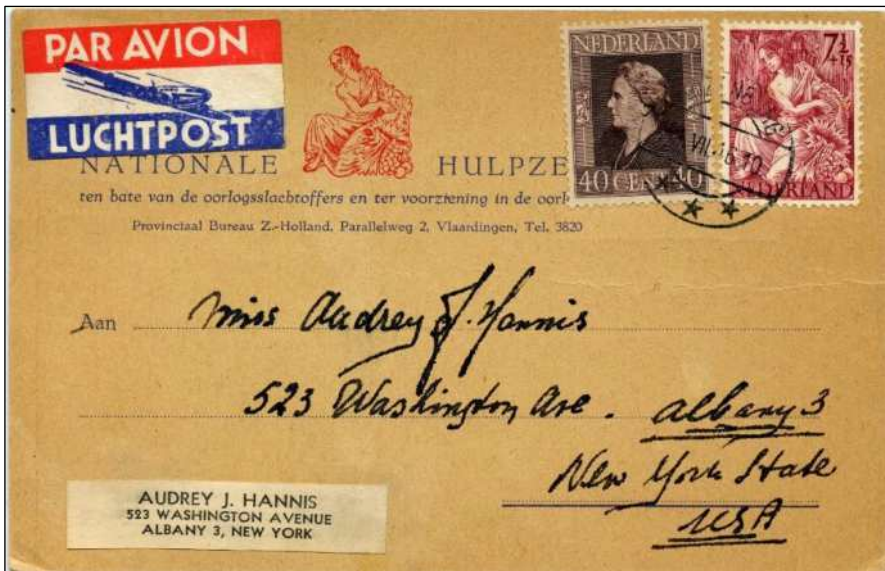 PAR AVION
LUCHTPOST
NEDERLAND
40 CENT 40
7½
+15
NEDERLAND
VII.46.10
NATIONALE HULPZE
ten bate van de oorlogsslachtoffers en ter voorziening in de oorl
Provinciaal Bureau Z.-Holland, Parallelweg 2, Vlaardingen, Tel. 3820
Aan Miss Audrey J. Hannis
523 Washington Ave. Albany 3
New York State
USA
AUDREY J. HANNIS
523 WASHINGTON AVENUE
ALBANY 3, NEW YORK